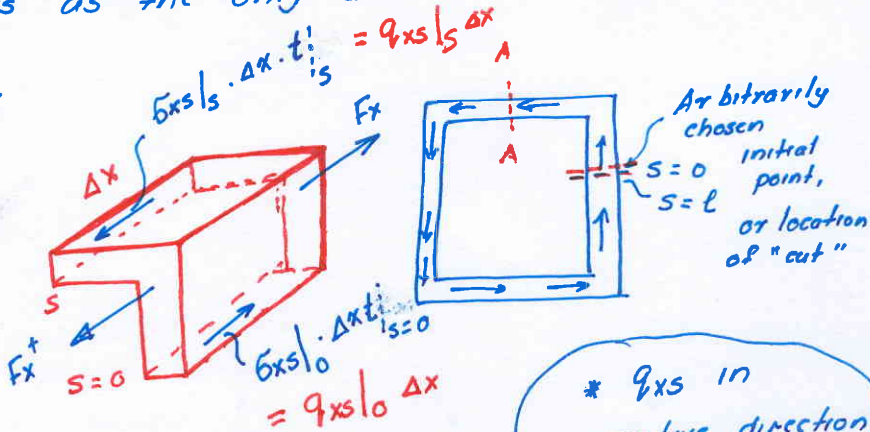 as the only
σxs|s · Δx · t|s = qxs|s Δx
A
Fx
Arbitrarily
chosen
initial
point,
or location
of "cut"
Δx
A
s=0
s=l
s
Fx⁺
s=0
σxs|0 · Δx t|s=0
= qxs|0 Δx
* qxs in
direction